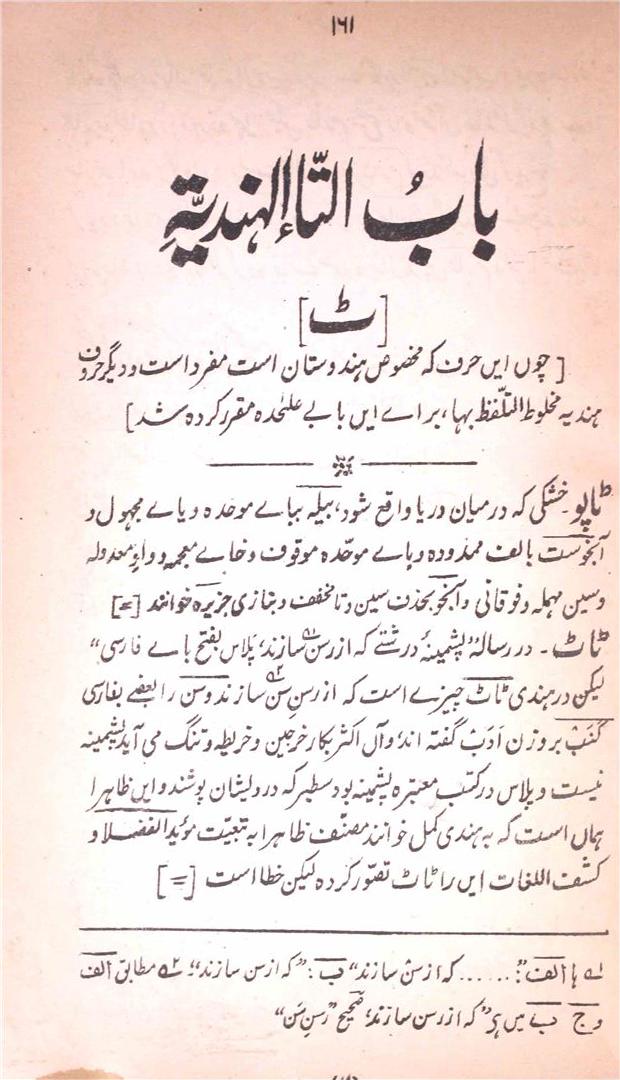 ۱۶۱
بابُ التّاالہندیّۃِ
[ٹ]
[چوں ایں حرف کہ مخصوص ہندوستان است مفرد است و دیگر حروف
ہندیہ مخلوط التلفّظ بہا، براے ایں بابے علٰحدہ مقرر کردہ شد]
ٹاپو۔ خشکی کہ درمیان دریا واقع شود، بیلہ بباے موحدہ و یاے مجہول و
آبخوست بالف ممدودہ و باے موحّدہ موقوف و خاے معجمہ و واو معدولہ
و سین مہملہ و فوقانی و آبخو بحذف سین و تا مخفف و بتازی جزیرہ خوانند [=]
ٹاٹ۔ در رسالہ "پشمینۂ درشتے کہ از رسن۱؎ سازند، پلاس بفتح باے فارسی"
لیکن در ہندی ٹاٹ چیزے است کہ از رسنِ سن۲؎ سازند و سن را بعضے بفارسی
کنَب بر وزن ادَب گفتہ اند و آں اکثر بکار خرجین و خریطہ و تنگ می آید پشمینہ
نیست و پلاس در کتب معتبرہ پشمینہ بود سطبر کہ درویشان پوشند و ایں ظاہرا
ہماں است کہ بہ ہندی کمل خوانند مصنّف ظاہرا بہ تبعیت مؤید الفضلا و
کشف اللغات ایں را ٹاٹ تصوّر کردہ لیکن خطا است [=]
۱؎ ہا الف: "...... کہ از سن سازند" ب: "کہ از سن سازند"؛ ۲؎ مطابق الف
و ج ب میں ہی "کہ از رسن سازند، صحیح "رسنِ سَن"